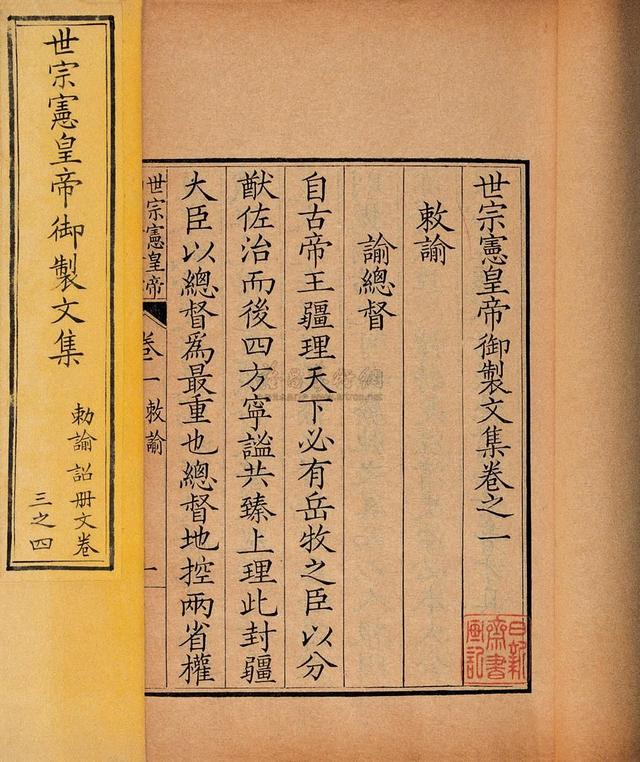 世宗憲皇帝御製文集卷之一
敕諭
諭總督
自古帝王疆理天下必有岳牧之臣以分
猷佐治而後四方寧謐共臻上理此封疆
大臣以總督爲最重也總督地控兩省權
世宗憲皇帝
卷一 敕諭
一
日新
齋書
畫記
世宗憲皇帝御製文集
勅諭 詔冊文卷
三之四